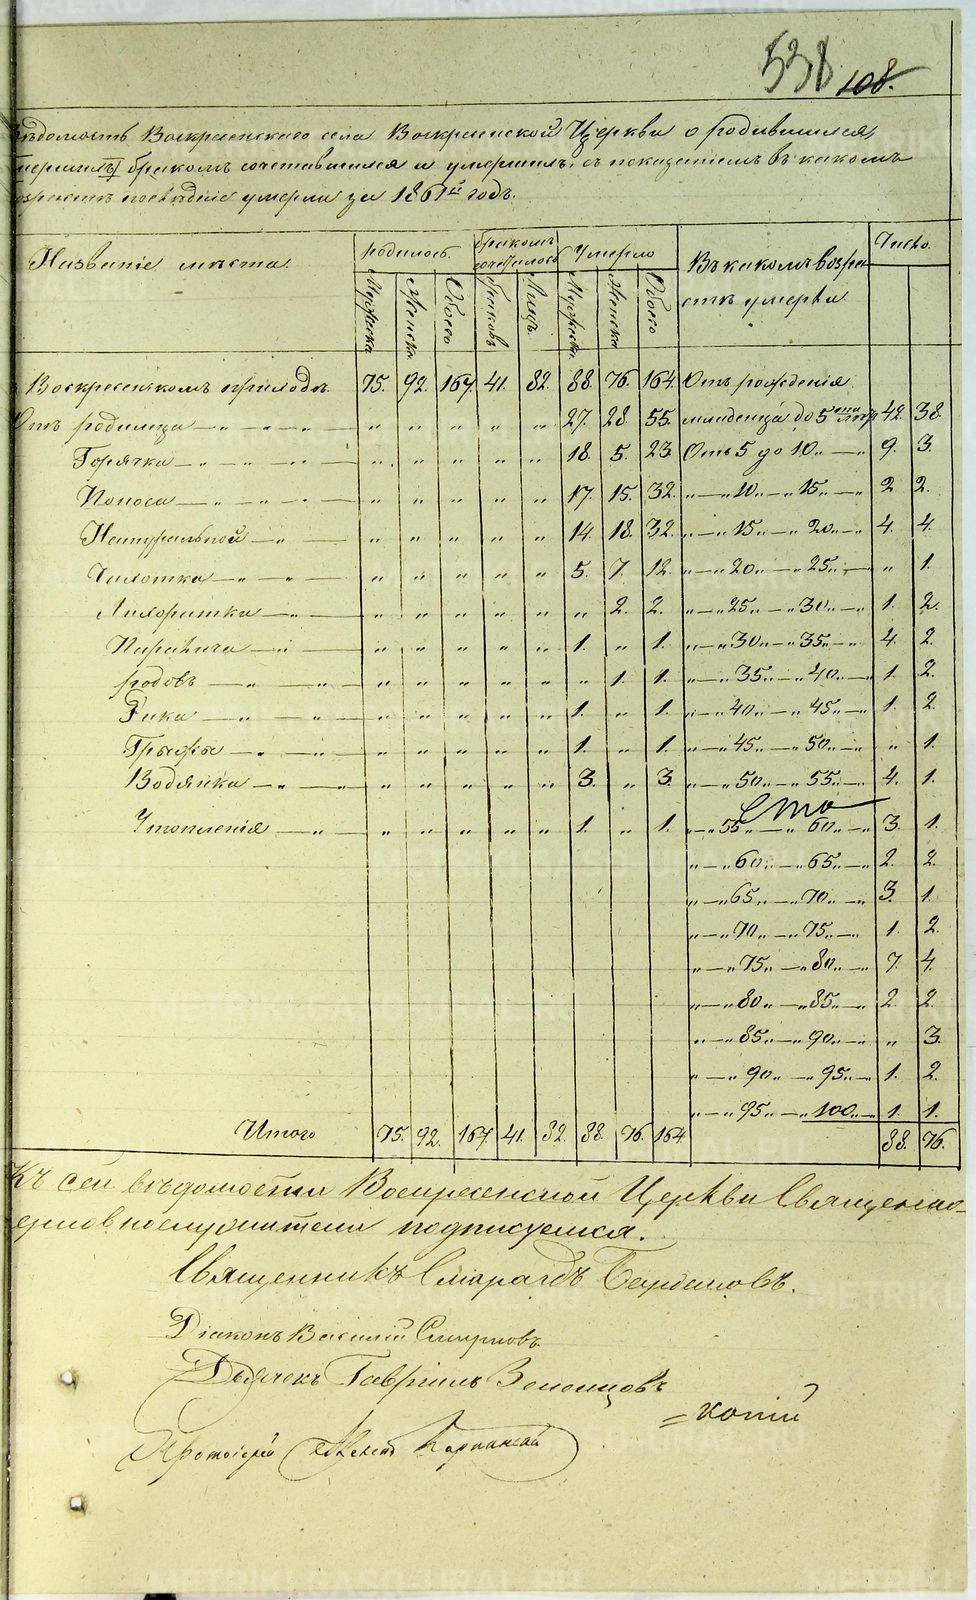 538
108.
Вѣдомость Воскресенскаго села Воскресенской Церкви о родившихся,
бракомъ сочетавшихся и умершихъ, съ показаніемъ въ какомъ
умерли за 1861й годъ.
Названіе мѣста. родилось. бракомъ сочеталось Умерло Въ какомъ возрастѣ умерли Число.
Мужеска Женска Обоего браковъ Лицъ. Мужеска. Женска Обоего
Воскресенскомъ приходѣ 75. 92. 167. 41. 82. 88. 76. 164. Отъ рожденія
Отъ родимца — „ — „ — „ — „ „ „ „ „ 27. 28. 55. младенца до 5 42. 38.
Горячка — „ — „ — „ — „ „ „ „ „ 18. 5. 23. Отъ 5 до 10 „ — „ 9. 3.
Поноса — „ — „ — „ — „ „ „ „ „ 17. 15. 32. „ — „ 10 „ — „ 15 „ — „ 2. 2.
Натуральной — „ — „ „ „ „ „ 14. 18. 32. „ — „ 15 „ — „ 20 „ — „ 4. 4.
Чахотка — „ — „ — „ „ „ „ „ 5. 7. 12. „ — „ 20 „ — „ 25 „ — „ „ 1.
Лихорадка — „ — „ „ „ „ „ „ 2. 2. „ — „ 25 „ — „ 30 „ — „ 1. 2.
Паралича — „ — „ „ „ „ „ 1. „ 1. „ — „ 30 „ — „ 35 „ — „ 4. 2.
родовъ — „ — „ — „ „ „ „ „ „ 1. 1. „ — „ 35 „ — „ 40 „ — „ 1. 2.
— „ — „ — „ „ „ „ „ 1. „ 1. „ — „ 40 „ — „ 45 „ — „ 1. 2.
Грыжи — „ — „ — „ „ „ „ „ 1. „ 1. „ — „ 45 „ — „ 50 „ — „ „ 1.
Водянка — „ — „ — „ „ „ „ „ 3. „ 3. „ — „ 50 „ — „ 55 „ — „ 4. 1.
Утопленія — „ — „ „ „ „ „ 1. „ 1. „ — „ 55 „ — „ 60 „ — „ 3. 1.
„ — „ 60 „ — „ 65 „ — „ 2. 2.
„ — „ 65 „ — „ 70 „ — „ 3. 1.
„ — „ 70 „ — „ 75 „ — „ 1. 2.
„ — „ 75 „ — „ 80 „ — „ 7. 4.
„ — „ 80 „ — „ 85 „ — „ 2. 2.
„ — „ 85 „ — „ 90 „ — „ „ 3.
„ — „ 90 „ — „ 95 „ — „ 1. 2.
„ — „ 95 „ — „ 100 „ — „ 1. 1.
Итого 75. 92. 167. 41. 82. 88. 76. 164 88. 76.
Къ сей вѣдомости Воскресенской Церкви Священно-
церковнослужители подписуемся.
Священникъ Смарагдъ
Діаконъ Василій Смирновъ
Дьячекъ Гавріилъ
Протоіерей